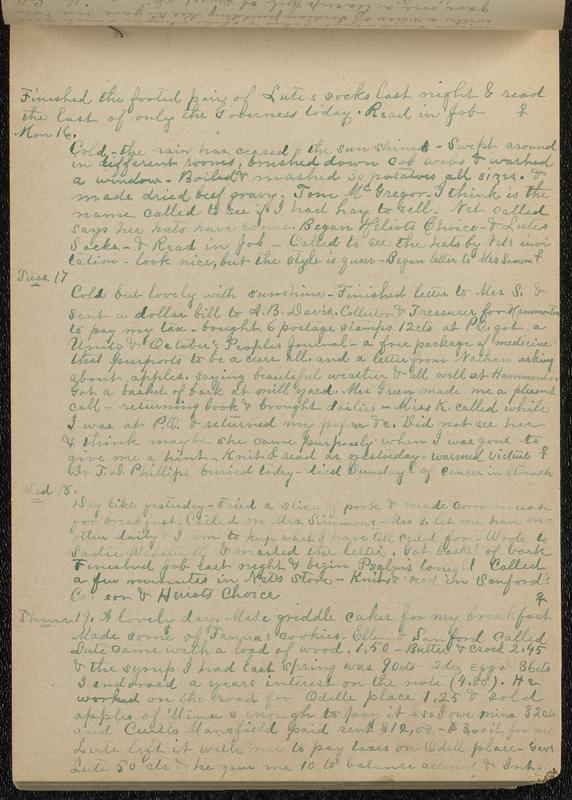 Finished the footed pair of Lute's socks last night & read
the last of only the Goberness today. Read in Job
Mon 16.
Cold - the rain has ceased & the sun shines - Swept around
in different rooms, brushed down cob webs & washed
a window - Boiled & mashed 30 potatoes all sizes. &
made dried beef gravy. Tom McGregor I think is the
name called to see if I had hay to sell. Net called
says her hats have come. Began Heliots Choice - & Lutes
Socks - & Read in Job - Called to see the hats by Net's invi
tation - look nice, but the style is queer - Began letter to Mrs Sansom
Tues 17
Cold but lovely with sunshine - Finished letter to Mrs S. &
sent a dollar bill to A.B. Davis. Collector & Treasurer for Hammonton
to pay my tax - bought 6 postage stamps 12cts at P.O. got a
Unity & October's Peoples Journal - a free package of medicine
that purports to be a cure all. and a letter from Nathan asking
about apples. saying beautiful weather & all well at Hammonton
Got a basket of bark at mill yard. Mrs Green made me a pleasant
call - returning book & brought dailies - Miss K. called while
I was at P.O. & returned my paper &c. Did not see her
& think maybe she came purposely when I was gone to
give me a hint - Knit & read as yesterday - warmed victuals
Dr F. D. Phillips buried today - died Sunday - of cancer in stomach
Wed 18.
Day like yesterday - Fried a slice of pork & made corn mush
for breakfast. Called on Mrs. Simmons - Mrs S. let me have an-
other daily & I am to keep what I have till called for - Wrote to
Sadie & mailed the letter. Got basket of bark
Finished Job last night & begin Psalms tonight Called
a few minutes in Nets Store - Knit & read in Sanford's
son & Heriots Choice
Thurs 19. A lovely day. Made griddle cakes for my breakfast
Made some of Fannie's cookies. Ellen & Sanford called
Lute came with a load of wood. 1.50 - Butter & crock 2.45
& the syrup I had last spring was 90cts - 2 doz eggs 36cts
I endorsed a years interest on the note (4.80). He
worked on the road for Odelle place 1.25 & sold
apples of mine enough to pay it & so I owe mine 32cts
and Curtis Mansfield paid rent $12,00 - $3,00 it for me
Lute left it with me to pay taxes on Odell place - Gave
Lute 50 cts & he gave me 10 to balance account & Int -